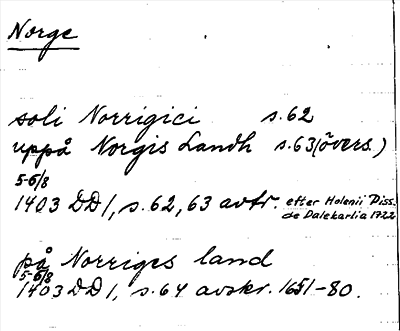 Norge
soli Norrigici s. 62
uppå Norgis Landh s. 63 (övers.)
5-6/8
1403 DD 1, s. 62, 63 avtr. efter Holenii Diss.
de Dalekarlia 1722
på Norriges land
5-6/8
1403 DD 1, s. 64 avskr. 1651-80.